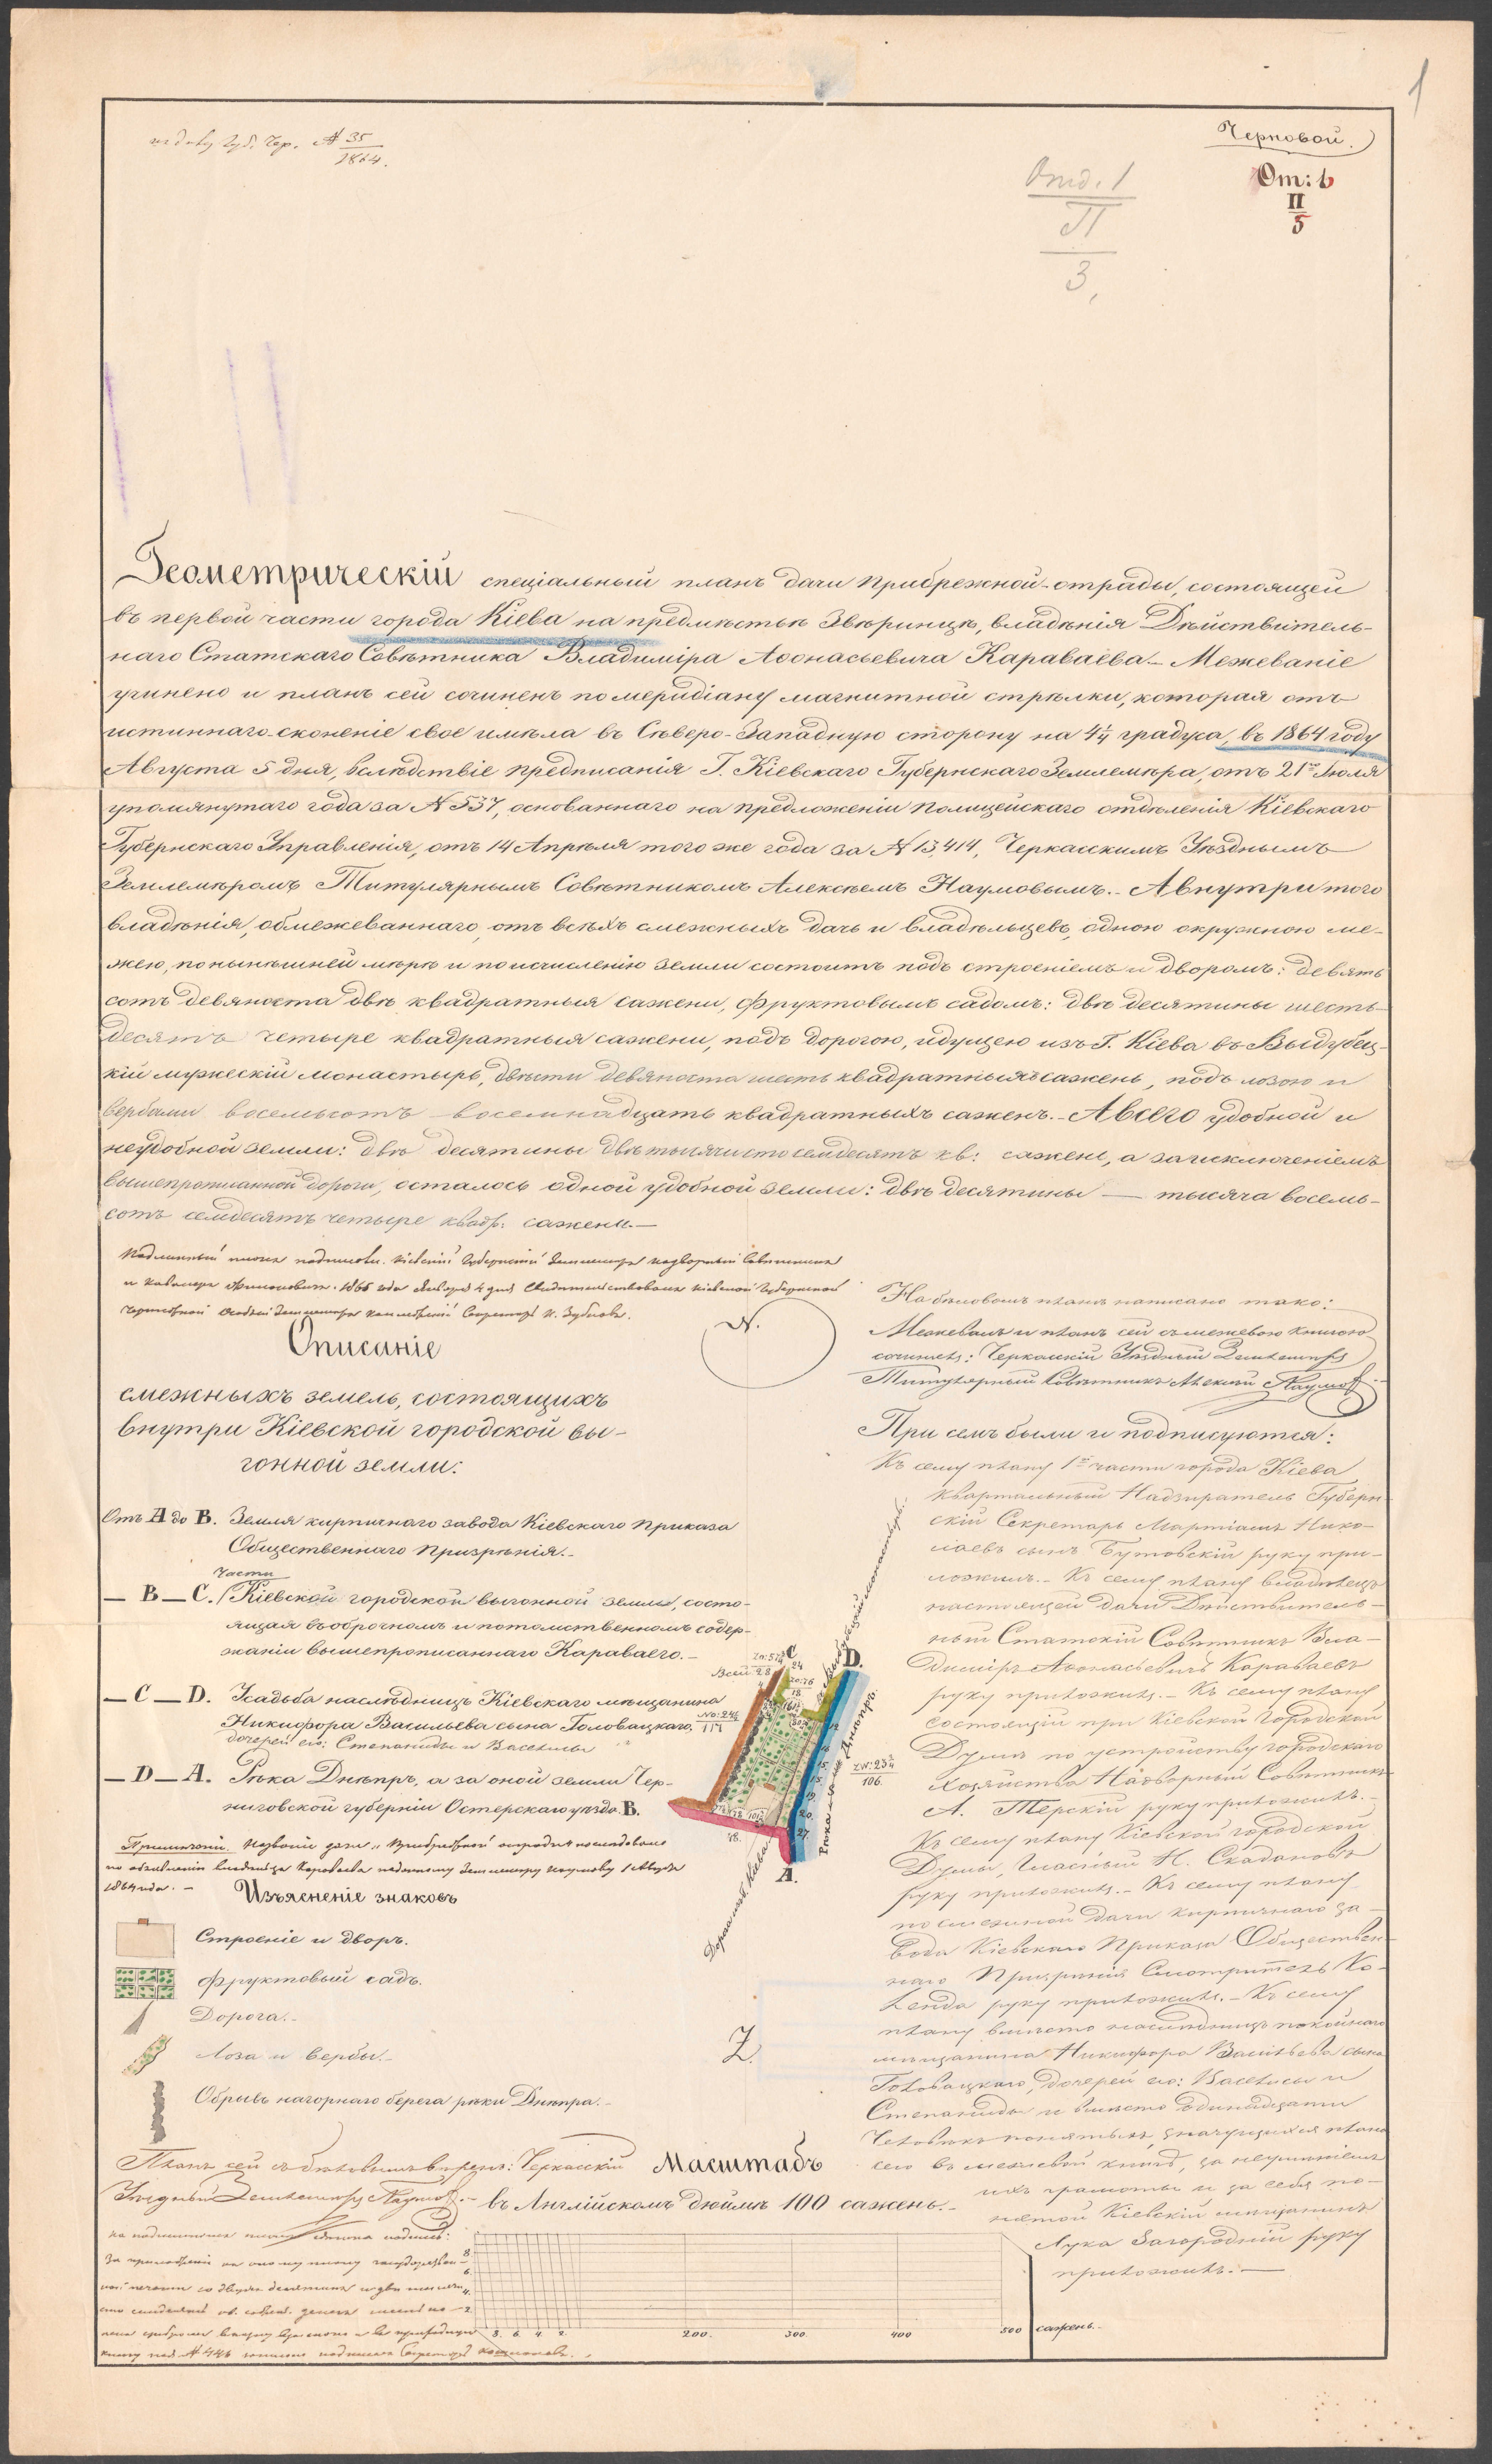 1
Черновой.
№ 35
1864.
Отд. 1
П
3
От: 6
II
5
Геометрическій спеціальный планъ дачи Прибрежной-отрады, состоящей
въ первой части города Кіева на предмѣстьѣ Звѣринцѣ, владѣнія Дѣйствитель-
наго Статскаго Совѣтника Владиміра Аѳонасьевича Караваева – Межеваніе
учинено и планъ сей сочиненъ по меридіану магнитной стрѣлки, которая отъ
истиннаго-склоненіе свое имѣла въ Сѣверо-Западную сторону на 4¼ градуса, въ 1864 году
Августа 5 дня, вслѣдствіе предписанія Г. Кіевскаго Губернскаго Землемѣра, отъ 21го Іюля
упомянутаго года за № 537, основаннаго на предложеніи Полицейскаго отдѣленія Кіевскаго
Губернскаго Управленія, отъ 14 Апрѣля того же года за № 13,414, Черкасскимъ Уѣзднымъ
Землемѣромъ Титулярнымъ Совѣтникомъ Алексѣемъ Наумовымъ. – А внутри того
владѣнія, обмежеваннаго, отъ всѣхъ смежныхъ дачъ и владѣльцевъ, одною окружною ме-
жею, по нынѣшней мѣрѣ и по исчисленію земли состоитъ подъ строеніемъ и дворомъ: девять
сотъ девяноста двѣ квадратныя сажени, фруктовымъ садомъ: двѣ десятины шесть-
десятъ четыре квадратныя сажени, подъ дорогою, идущею изъ Г. Кіева въ Выдубец-
кій мужескій монастырь, двѣсти девяноста шесть квадратныхъ сажень, подъ лозою и
вербами восемьсотъ восемнадцать квадратныхъ саженъ. – А всего удобной и
неудобной земли: двѣ десятины двѣ тысячи сто семдесятъ кв: сажень, а за исключеніемъ
вышепрописанной дороги, осталось одной удобной земли: двѣ десятины — тысяча восемь-
сотъ семдесятъ четыре квадр: сажени. —
Подлинный планъ подписали. Кіевскій Губернскій Землемѣръ Надворный Совѣтникъ
N.
На бѣловомъ планѣ написано тако:
Межевалъ и планъ сей съ межевою книгою
сочинялъ: Черкасскій Уѣздный Землемѣръ
Титулярный Совѣтникъ Алексѣй Наумовъ.
Описаніе
смежныхъ земель, состоящихъ
внутри Кіевской городской вы-
гонной земли:
Отъ А до В. Земля кирпичнаго завода Кіевскаго Приказа
Общественнаго Призрѣнія. –
Части
— В — С. Кіевской городской выгонной земли, состо-
ящая въ оброчномъ и потомственномъ содер-
жаніи вышепрописаннаго Караваева. –
— С — D. Усадьба наслѣдницъ Кіевскаго мѣщанина
Никифора Васильева сына Головацкаго,
дочерей его: Степаниды и Василисы
— D — А. Рѣка Днѣпръ, а за оной земли Чер-
ниговской губерніи Остерскаго уѣзда.
Изъясненіе знаковъ
Строеніе и дворъ.
Фруктовый садъ.
Дорога. –
Лоза и вербы. –
Обрывъ нагорнаго берега рѣки Днѣпра. –
C
D.
B.
A.
Рѣка Днѣпръ.
Дорога изъ Кіева
Z.
При семъ были и подписуются:
Къ сему плану 1й части города Кіева
Квартальный Надзиратель Губерн-
скій Секретарь Мартіанъ Нико-
лаевъ сынъ Бутовскій руку при-
ложилъ. – Къ сему плану владѣлецъ
настоящей дачи Дѣйствитель-
ный Статскій Совѣтникъ Вла-
диміръ Аѳонасьевичъ Караваевъ
руку приложилъ. – Къ сему плану
состоящій при Кіевской Городской
Думѣ по устройству городскаго
Хозяйства Надворный Совѣтникъ
А. Терскій руку приложилъ. –
Къ сему плану Кіевской городской
Думы, Гласный Н. Скадановъ
руку приложилъ. – Къ сему плану
по смежной дачи кирпичнаго за-
вода Кіевскаго Приказа Обществен-
наго Призрѣнія Смотритель Ко-
ленда руку приложилъ. – Къ сему
плану вмѣсто наслѣдницъ покойнаго
мѣщанина Никифора Васильева сына
Головацкаго, дочерей его: Василисы и
Степаниды и вмѣсто одинадцати
Человѣкъ понятыхъ, значущихся плана
сего въ межевой книгѣ, за неумѣніемъ
ихъ грамоты и за себя по-
нятой Кіевскій мѣщанинъ
Лука Загородній руку
приложилъ. —
Планъ сей съ бѣловымъ вѣренъ: Черкасскій
Уѣздный Землемѣръ Наумовъ. –
Масштабъ
въ Англійскомъ дюймѣ 100 сажень. –
8. 6. 4. 2. 200. 300. 400 500 сажень. –